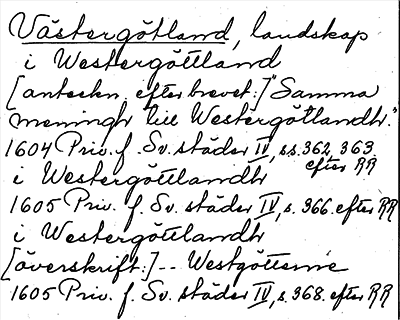 Västergötland, landskap
i Westergöttland
[anteckn. efter brevet:] "Samma
meningh till Westergötlandh."
1604 Priv. f. Sv. städer IV, s.s. 362, 363
efter RR
i Westergöttlandh
1605 Priv. f. Sv. städer IV, s. 366. efter RR
i Westergöttlandh
[överskrift:] -- Westgötterne
1605 Priv. f. Sv. städer IV, s. 368. efter RR